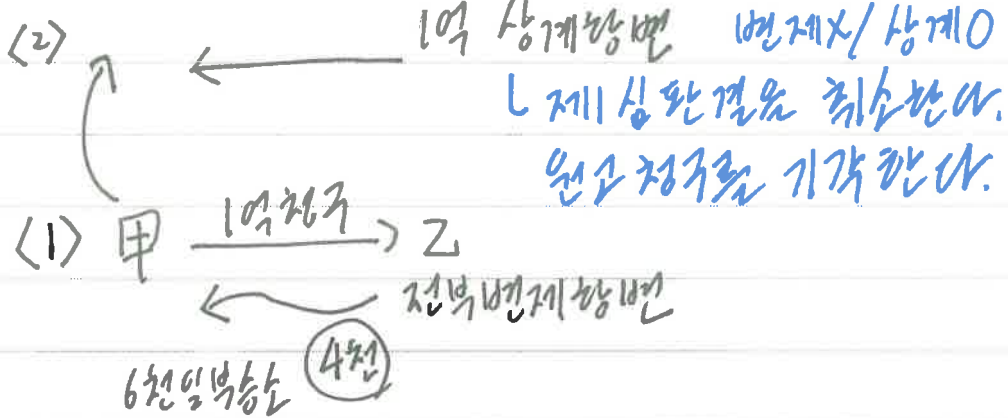 <2> 1억 상계항변 변제X/상계O
ㄴ제1심판결을 취소한다.
원고청구를 기각한다.
<1> 甲 1억청구 乙
전부변제항변
6천일부승소 4천